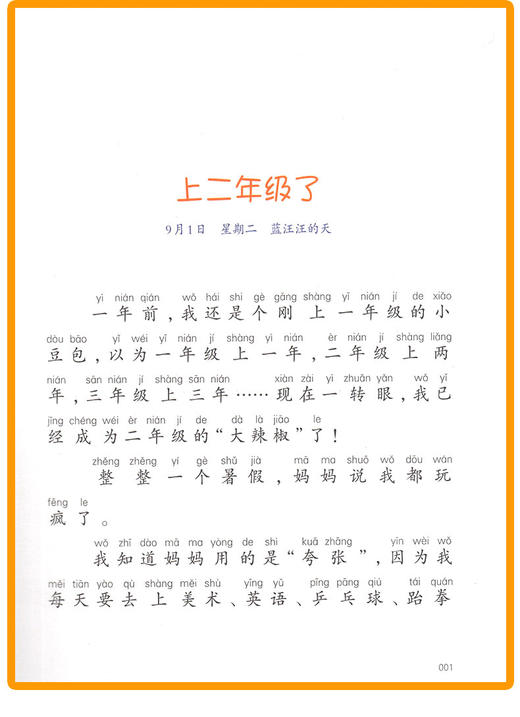 上二年级了
9月1日 星期二 蓝汪汪的天
yì nián qián wǒ hái shi gè gāng shàng yī nián jí de xiǎo
一年前，我还是个刚上一年级的小
dòu bāo yǐ wéi yī nián jí shàng yì nián èr nián jí shàng liǎng
豆包，以为一年级上一年，二年级上两
nián sān nián jí shàng sān nián xiàn zài yì zhuǎn yǎn wǒ yǐ
年，三年级上三年……现在一转眼，我已
jīng chéng wéi èr nián jí de dà là jiāo le
经成为二年级的“大辣椒”了！
zhěng zhěng yí gè shǔ jià mā ma shuō wǒ dōu wán
整整一个暑假，妈妈说我都玩
fēng le
疯了。
wǒ zhī dào mā ma yòng de shi kuā zhāng yīn wèi wǒ
我知道妈妈用的是“夸张”，因为我
měi tiān yào qù shàng měi shù yīng yǔ pīng pāng qiú tái quán
每天要去上美术、英语、乒乓球、跆拳
001